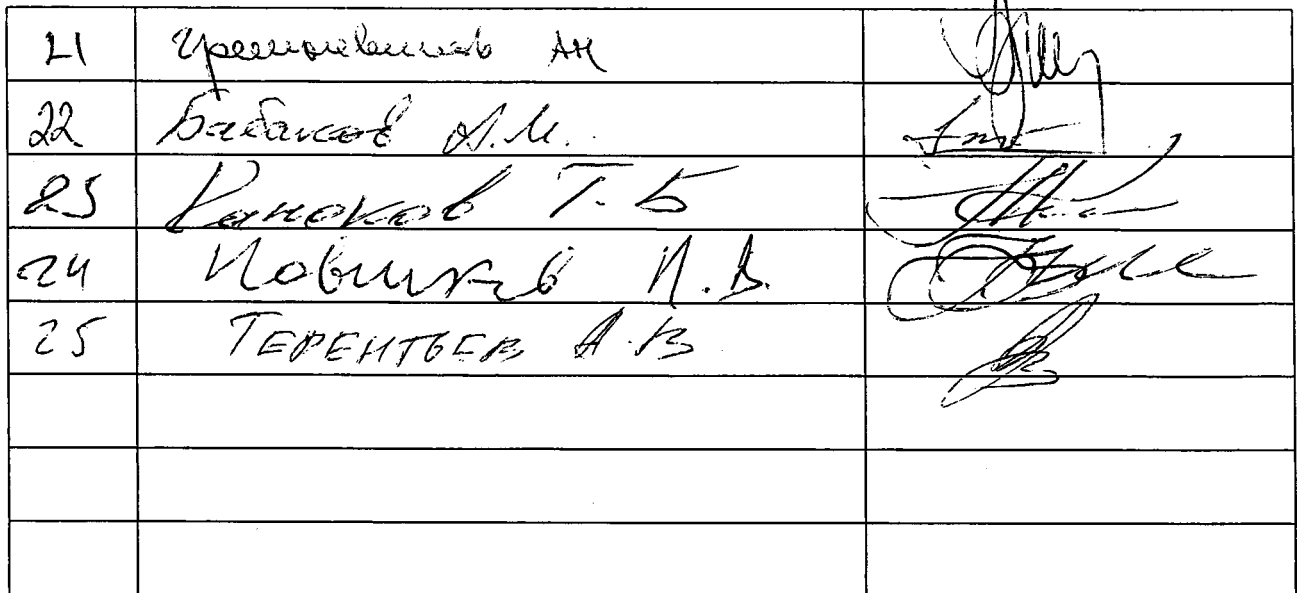 21 АН
22 Бабаков А.М.
23 Каноков Т.Б
24 Новиков И.В.
25 ТЕРЕНТЬЕВ А.В